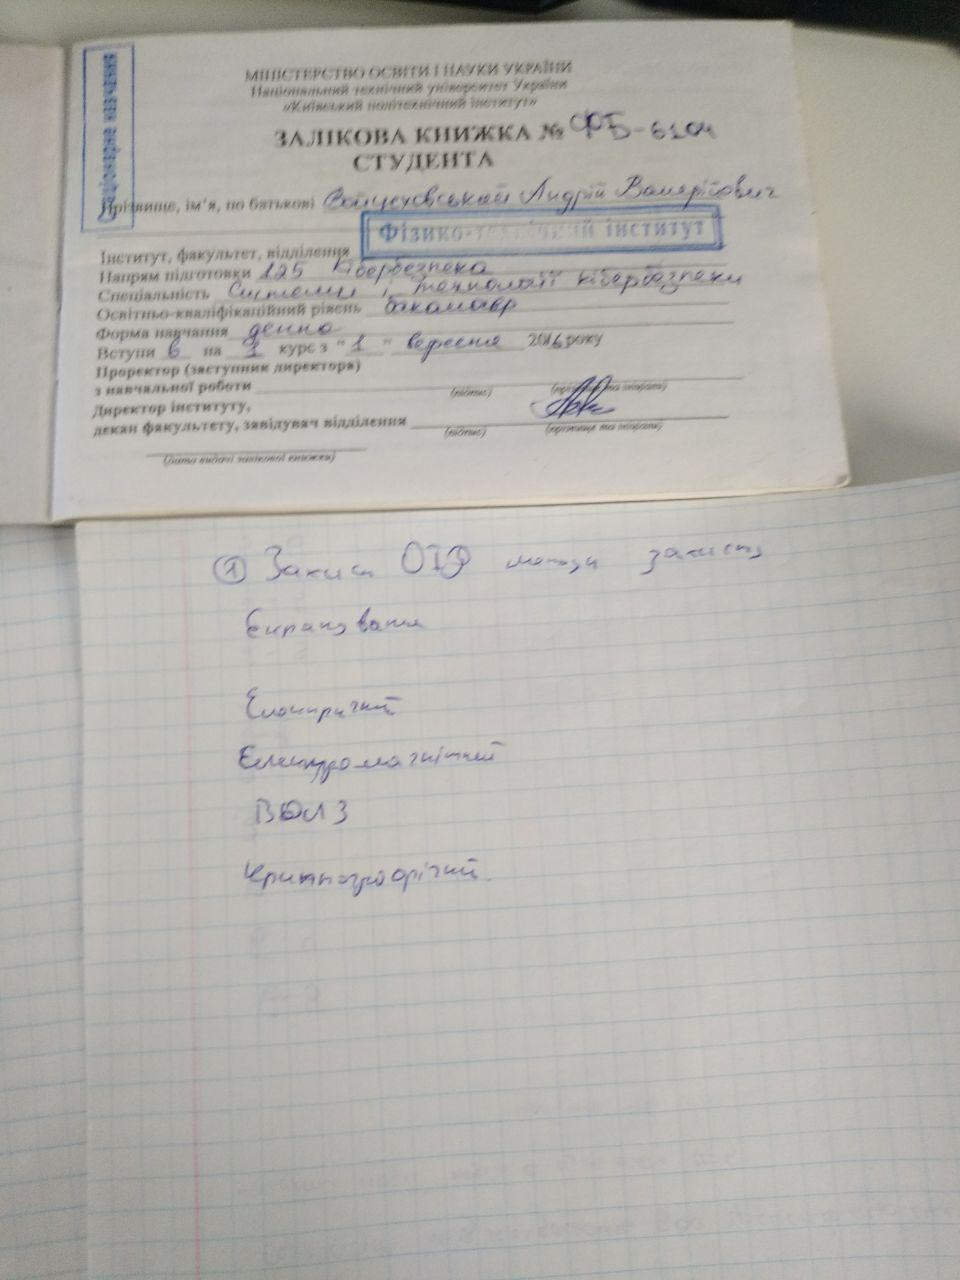 МІНІСТЕРСТВО ОСВІТИ І НАУКИ УКРАЇНИ
Національний технічний університет України
«Київський політехнічний інститут»
ЗАЛІКОВА КНИЖКА № ФБ-6104
СТУДЕНТА
Прізвище, ім'я, по батькові Андрій Валерійович
Фізико-технічний інститут
Інститут, факультет, відділення
Напрям підготовки 125 Кібербезпека
Спеціальність Системи і технології кібербезпеки
Освітньо-кваліфікаційний рівень бакалавр
Форма навчання денна
Вступи в на 1 курс з "1" вересня 2016 року
Проректор (заступник директора)
з навчальної роботи
(підпис) (прізвище та ініціали)
Директор інституту,
декан факультету, завідувач відділення
(підпис) (прізвище та ініціали)
(дата видачі залікової книжки)
① Захист методи захисту
Екранування
Електромагнітний
Криптографічний.